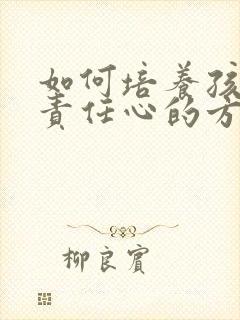 如何培養孩
責任心的方
柳良賓